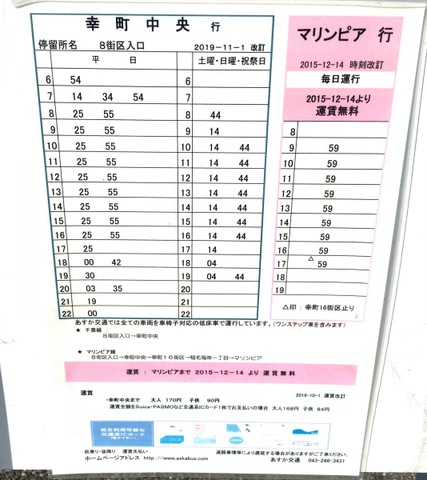 幸町中央 行
停留所名 8街区入口 2019-11-1 改訂
平日 土曜・日曜・祝祭日
6 54 6
7 14 34 54 7
8 25 55 8 44
9 25 55 9 14
10 25 55 10 14 44
11 25 55 11 14 44
12 25 55 12 14 44
13 25 55 13 14 44
14 25 55 14 14 44
15 25 55 15 14 44
16 25 55 16 14 44
17 25 17 14
18 00 42 18 04
19 30 19 04 44
20 03 35 20
21 19 21
22 00 22
マリンピア 行
2015-12-14 時刻改訂
毎日運行
2015-12-14より
運賃無料
8
9 59
10 59
11 59
12 59
13 59
14 59
15 59
16 59
17 △59
18
19
△印：幸町16街区止り
あすか交通では全ての車両を車椅子対応の低床車で運行しています。(ワンステップ車を含みます)
★ 千葉線
8街区入口→幸町中央
★ マリンピア線
8街区入口→幸町中央→幸町16街区→稲毛海岸一丁目→マリンピア
運賃：マリンピアまで 2015-12-14 より 運賃無料
運賃 2019-10-1 運賃改訂
・幸町中央まで 大人 170円 子供 90円
運賃全額をSuica・PASMOなど交通系ICカード1枚でお支払いの場合 大人168円 子供 84円
相互利用可能な
交通系ICカード
前乗り・後降り 運賃先払い
道路事情等により遅延する場合がありますがご了承ください。
ホームページアドレス http://www.askabus.com
あすか交通 043-246-3431